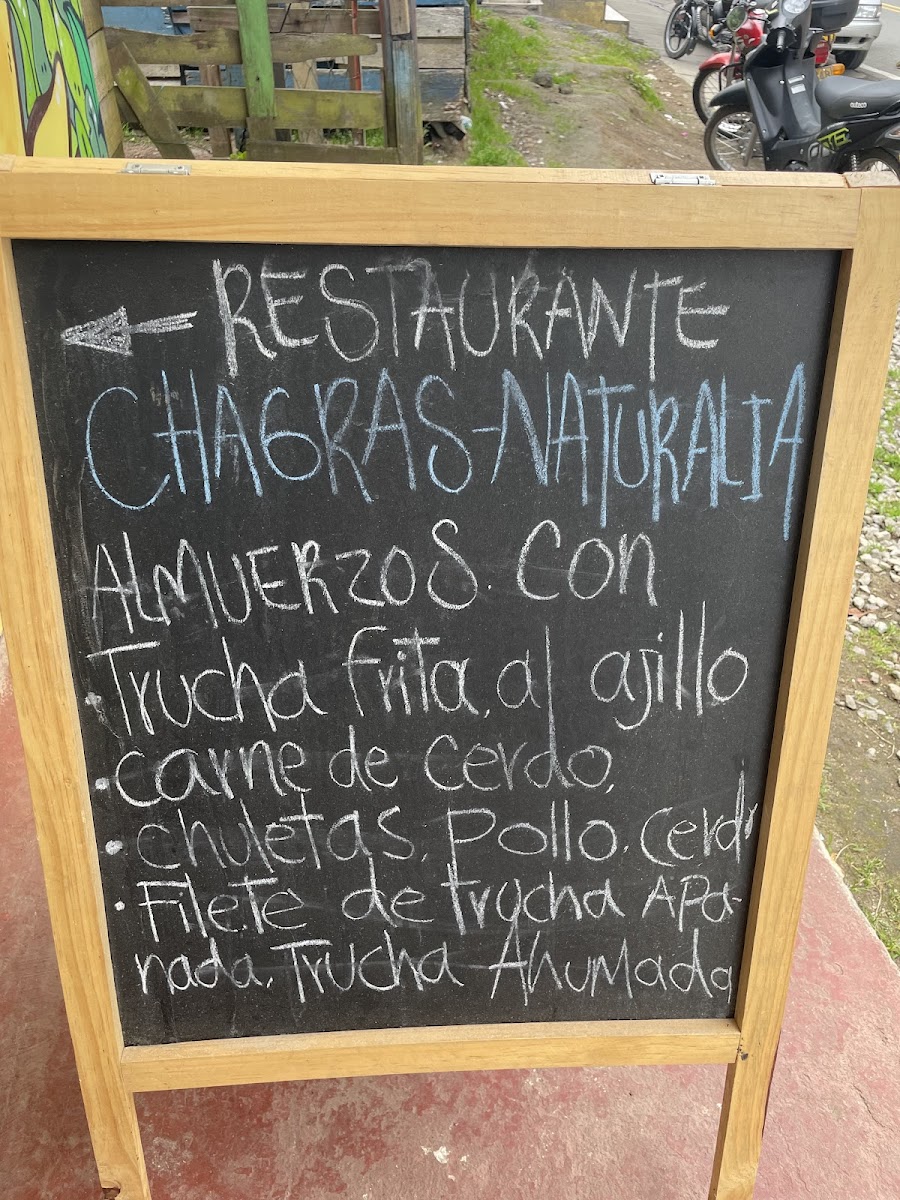 RESTAURANTE
CHAGRAS-NATURALIA
ALMUERZOS. Con
Trucha frita, al ajillo
• carne de cerdo,
• chuletas, Pollo, cerdo
• Filete de trucha APa-
nada, Trucha Ahumada